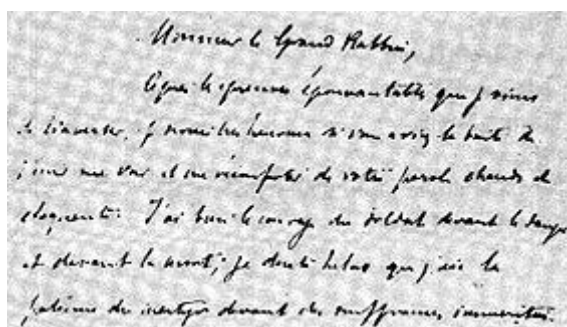 Monsieur le Grand Rabbin,
épouvantables que je viens
de traverser, je serais très heureux si vous aviez la bonté de
me voir et me réconforter de votre parole chaude et
éloquente. J'ai bien le courage du soldat devant le danger
et devant la mort; je doute hélas que j'aie la
du martyr devant des souffrances imméritées.